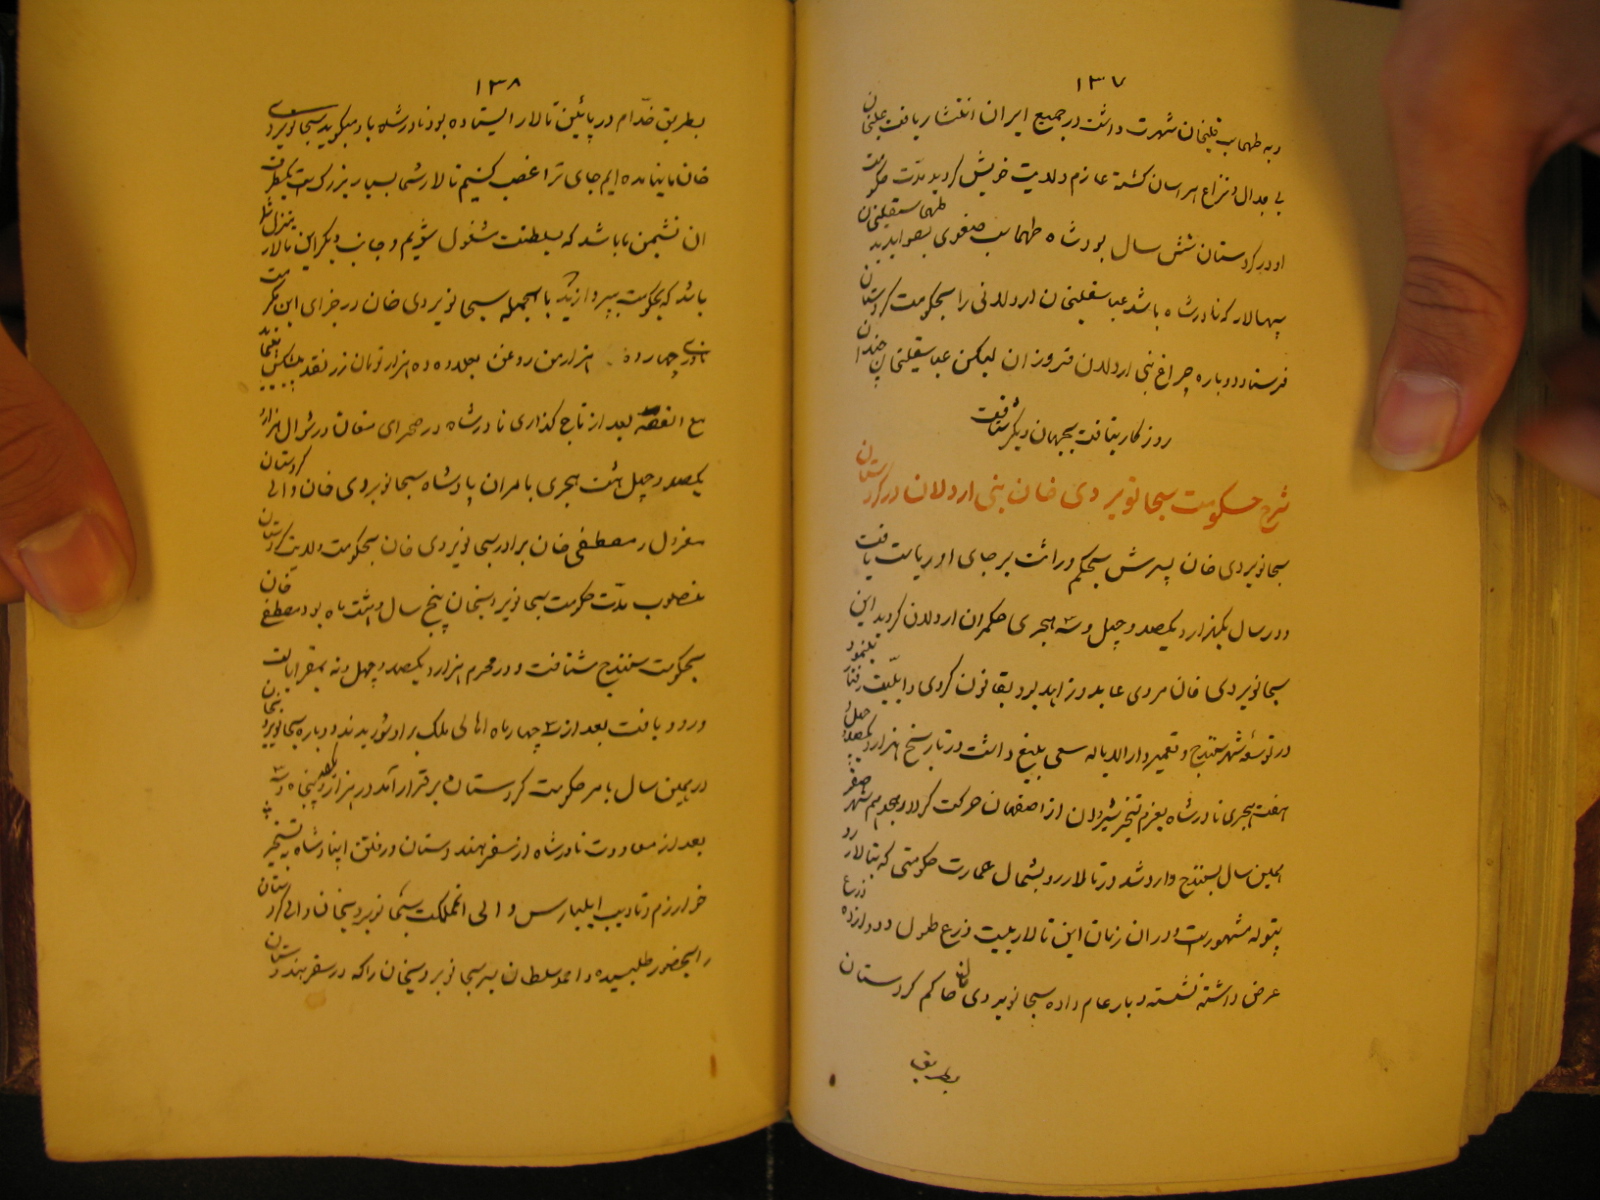 ۱۳۷
و به طهماسبقلیخان شهرت داشت در جمیع ایران انتشار یافت علیخان
بی جدال و نزاع هراسان گشته عازم ولایت خویش گردید مدّت حکومت
او در کردستان شش سال بود شاه طهماسب صفوی بصوابدید طهماسبقلیخان
سپهسالار که نادرشاه باشد عباسقلیخان اردلانی را بحکومت کردستان
فرستاد دوباره چراغ بنی اردلان فروزان لیکن عباسقلیخان چندان
روزگار نیافت بجهان دیگر شتافت
شرح حکومت سبحانویردی خان بنی اردلان در کردستان
سبحانویردی خان پسرش بحکم وراثت بر جای او ریاست یافت
و در سال یکهزار و یکصد و چهل و سه هجری حکمران اردلان گردید این
سبحانویردی خان مردی عابد و زاهد بود بقانون کردی و ایلیّت رفتار مینمود
در توسعه شهر سنندج و تعمیر دارالایاله سعی بلیغ داشت در تاریخ هزار و یکصد و چهل و
هفت هجری نادرشاه بعزم تسخیر شیروان از اصفهان حرکت کرده و بیجدهم شهر صفر
همین سال بسنندج وارد شد در تالار رو بشمال عمارت حکومتی که بتالار رو
بتوله مشهور است و در ان زمان این تالار بیست ذرع طول و دوازده ذرع
عرض داشته نشسته و بار عام داده سبحانویردی خان حاکم کردستان
بطریق
۱۳۸
بطریق خدّام در پائین تالار ایستاده بود نادرشاه باو میگوید سبحانویردی
خان ما نیامده ایم جای ترا غصب کنیم تالار شما بسیار بزرک است یکطرف
ان نشیمن ما باشد که بسلطنت مشغول شویم و جانب دیگر این تالار منزل شما
باشد که بحکومت بپردازید بالجمله سبحانویردی خان در جزای این مکرمت
نادری چهارده هزار من روغن بعلاوه ده هزار تومان زر نقد پیشکش مینماید
مع القصه بعد از تاج گذاری نادرشاه در صحرای مغان در شوال هزار و
یکصد و چهل هشت هجری بامر ان پادشاه سبحانویردی خان والی کردستان
معزول و مصطفی خان برادر سبحانویردی خان بحکومت ولایت کردستان
منصوب مدّت حکومت سبحانویردیخان پنج سال و هشت ماه بود مصطفی خان
بحکومت سنندج شتافت و در محرم هزار و یکصد و چهل و نه بمقر ایالت
ورود یافت بعد از ۳ چهار ماه اهالی ملک بر او شوریدند دوباره سبحانویردیخان
در همین سال بامر حکومت کردستان برقرار آمد در هزار و یکصد و پنجاه و سه
بعد از معاودت نادرشاه از سفر هندوستان و رفتن اپنادشاه به تسخیر
خوارزم و تادیب ایلبارس والی انمملکت سبحانویردیخان والی کردستان
را بحضور طلبیده و احمد سلطان پسر سبحانویردیخان را که در سفر هندوستان